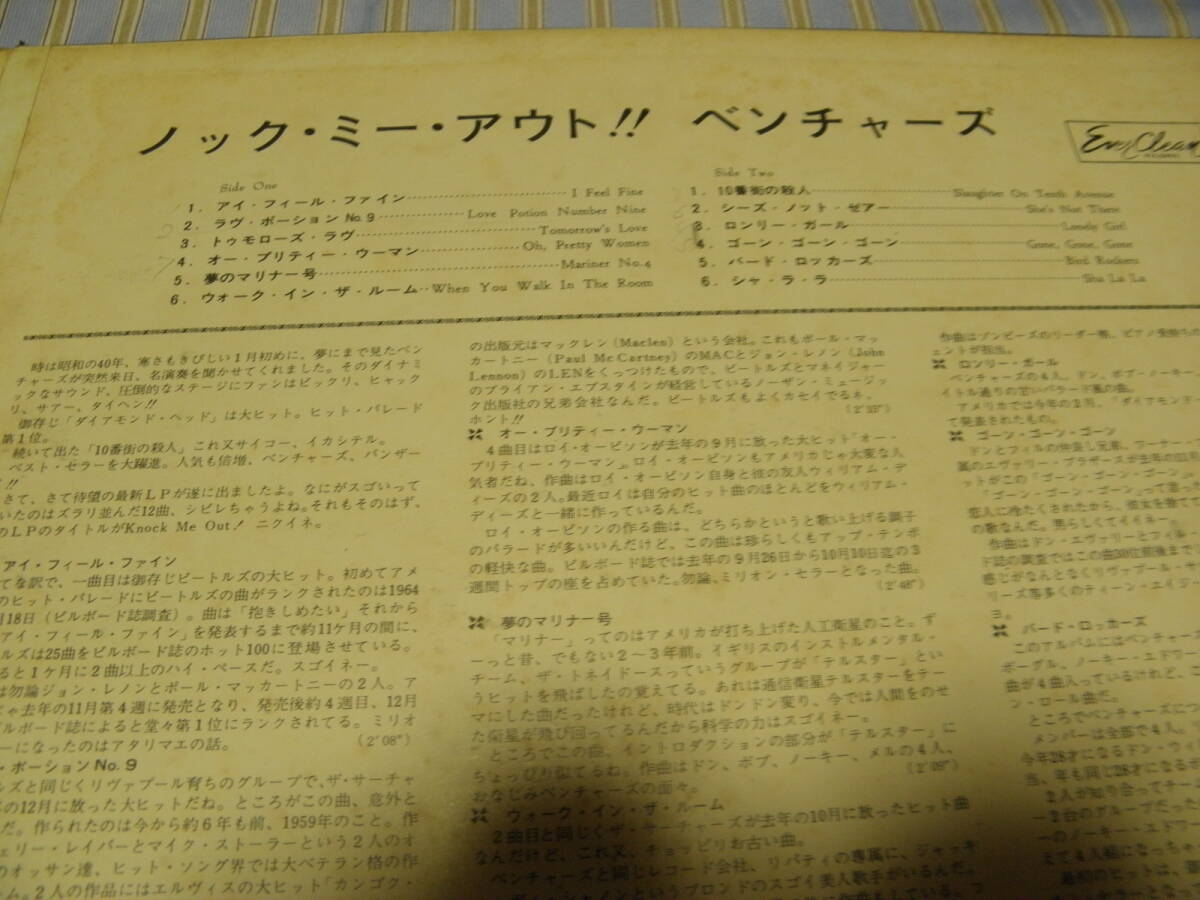 ノック・ミー・アウト!! ベンチャーズ
Ever Clean
Side One
1. アイ・フィール・ファイン I Feel Fine
2. ラヴ・ポーション No.9 Love Potion Number Nine
3. トゥモローズ・ラヴ Tomorrow's Love
4. オー・プリティー・ウーマン Oh, Pretty Women
5. 夢のマリナー号 Mariner No.4
6. ウォーク・イン・ザ・ルーム When You Walk In The Room
Side Two
1. 10番街の殺人 Slaughter On Tenth Avenue
2. シーズ・ノット・ゼアー She's Not There
3. ロンリー・ガール Lonely Girl
4. ゴーン・ゴーン・ゴーン Gone, Gone, Gone
5. バード・ロッカーズ Bird Rockers
6. シャ・ラ・ラ Sha La La
時は昭和の40年、寒さもきびしい1月初めに、夢にまで見たベン
チャーズが突然来日、名演奏を聞かせてくれました。そのダイナミ
ックなサウンド、圧倒的なステージにファンはビックリ、ヒャック
リ、サアー、タイヘン!!
御存じ「ダイアモンド・ヘッド」は大ヒット。ヒット・パレード
第1位。
続いて出た「10番街の殺人」これ又サイコー、イカシテル。
ベスト・セラーを大躍進。人気も倍増、ベンチャーズ、バンザー
!!
さて、さて待望の最新LPが遂に出ましたよ。なにがスゴいって
いたのはズラリ並んだ12曲、シビレちゃうよね。それもそのはず、
のLPのタイトルがKnock Me Out! ニクイネ。
アイ・フィール・ファイン
てな訳で、一曲目は御存じビートルズの大ヒット。初めてアメ
のヒット・パレードにビートルズの曲がランクされたのは1964
月18日(ビルボード誌調査)。曲は「抱きしめたい」それから
アイ・フィール・ファイン」を発表するまで約11ケ月の間に、
ルズは25曲をビルボード誌のホット100に登場させている。
ると1ケ月に2曲以上のハイ・ペースだ。スゴイネー。
は勿論ジョン・レノンとポール・マッカートニーの2人。ア
ゃ去年の11月第4週に発売となり、発売後約4週目、12月
ルボード誌によると堂々第1位にランクされてる。ミリオ
ーになったのはアタリマエの話。 (2'08")
・ポーションNo.9
ルズと同じくリヴァプール育ちのグループで、ザ・サーチャ
の12月に放った大ヒットだね。ところがこの曲、意外と
だ。作られたのは今から約6年も前、1959年のこと。作
ェリー・レイバーとマイク・ストーラーという2人のオ
のオッサン達、ヒット・ソング界では大ベテラン格の作
ム。2人の作品にはエルヴィスの大ヒット「カンゴク・
の出版元はマックレン(Maclen)という会社。これもポール・マッ
カートニー(Paul McCartney)のMACとジョン・レノン(John
Lennon)のLENをくっつけたもので、ビートルズとマネイジャー
のブライアン・エプスタインが経営しているノーザン・ミュージッ
ク出版社の兄弟会社なんだ。ビートルズもよくカセイでるネ、
ホント!!
オー・プリティー・ウーマン
4曲目はロイ・オービソンが去年の9月に放った大ヒット「オー・
プリティー・ウーマン」。ロイ・オービソンもアメリカじゃ大変な人
気者だね、作曲はロイ・オービソン自身と彼の友人ウィリアム・デ
ィーズの2人。最近ロイは自分のヒット曲のほとんどをウィリアム・
ディーズと一緒に作っているんだ。
ロイ・オービソンの作る曲は、どちらかというと歌い上げる調子
のバラードが多いいんだけど、この曲は珍らしくもアップ・テンポ
の軽快な曲。ビルボード誌では去年の9月26日から10月10日迄の3
週間トップの座を占めていた。勿論、ミリオン・セラーとなった曲。
(2'48")
夢のマリナー号
「マリナー」ってのはアメリカが打ち上げた人工衛星のこと。ず
ーっと昔、でもない2〜3年前。イギリスのインストルメンタル・
チーム、ザ・トネイドースっていうグループが「テルスター」とい
うヒットを飛ばしたの覚えてる。あれは通信衛星テルスターをテー
マにした曲だったけれど、時代はドンドン変り、今では人間をのせ
た衛星が飛び回ってるんだから科学の力はスゴイネー。
ところでこの曲、イントロダクションの部分が「テルスター」に
ちょっぴり似てるね。作曲はドン、ボブ、ノーキー、メルの4人、
おなじみベンチャーズの面々。 (2'09")
ウォーク・イン・ザ・ルーム
2曲目と同じくザ・サーチャーズが去年の10月に放ったヒット曲
なんだけど、これ又、チョッピリお古い曲。
ベンチャーズと同じレコード会社、リバティの専属に、ジャッキ
インというブロンドのスゴイ美人歌手がいるんだ。
ロンリー・ガール
ベンチャーズの4人、ドン、ボブ、ノーキー、
イトル通りの甘いバラード風の曲。
アメリカでは今年の2月、「ダイアモンド・
て発表されたもの。
ゴーン・ゴーン・ゴーン
バード・ロッカーズ
このアルバムにはベンチャーズ
ボーグル、ノーキー・エドワー
曲が4曲入っているけれど、
ン・ロール曲だ。
ところでベンチャーズにつ
メンバーは全部で4人。
今年28才になるドン・ウィ
当、年も同じ28才になるボ
2人が知り合ってチー